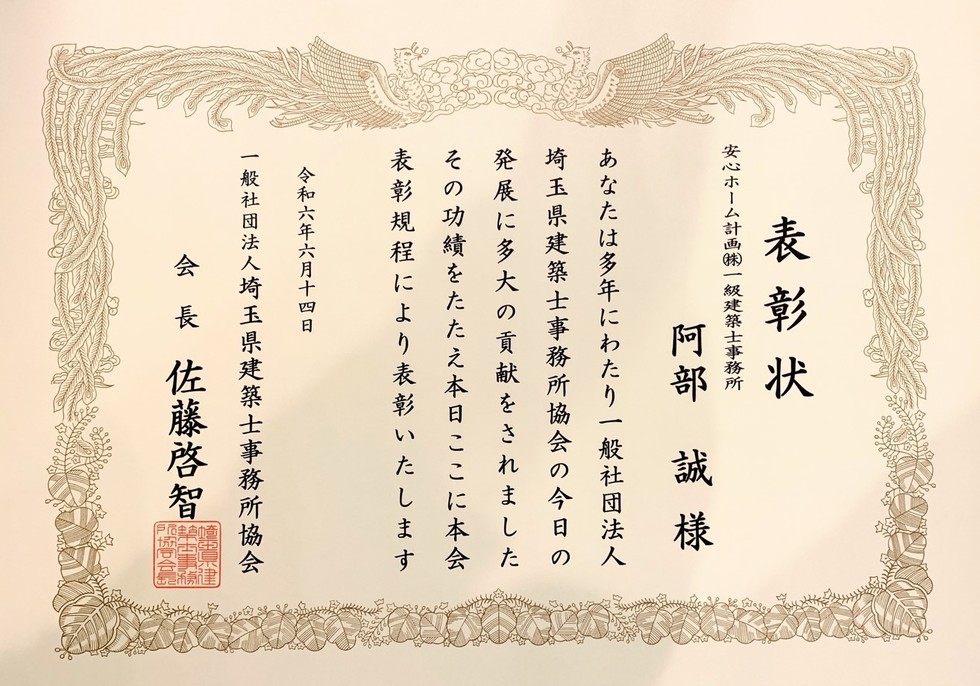 表彰状
安心ホーム計画㈱一級建築士事務所
阿部 誠 様
あなたは多年にわたり一般社団法人
埼玉県建築士事務所協会の今日の
発展に多大の貢献をされました
その功績をたたえ本日ここに本会
表彰規程により表彰いたします
令和六年六月十四日
一般社団法人埼玉県建築士事務所協会
会長 佐藤啓智
埼玉県建
築士事務
所協会会長